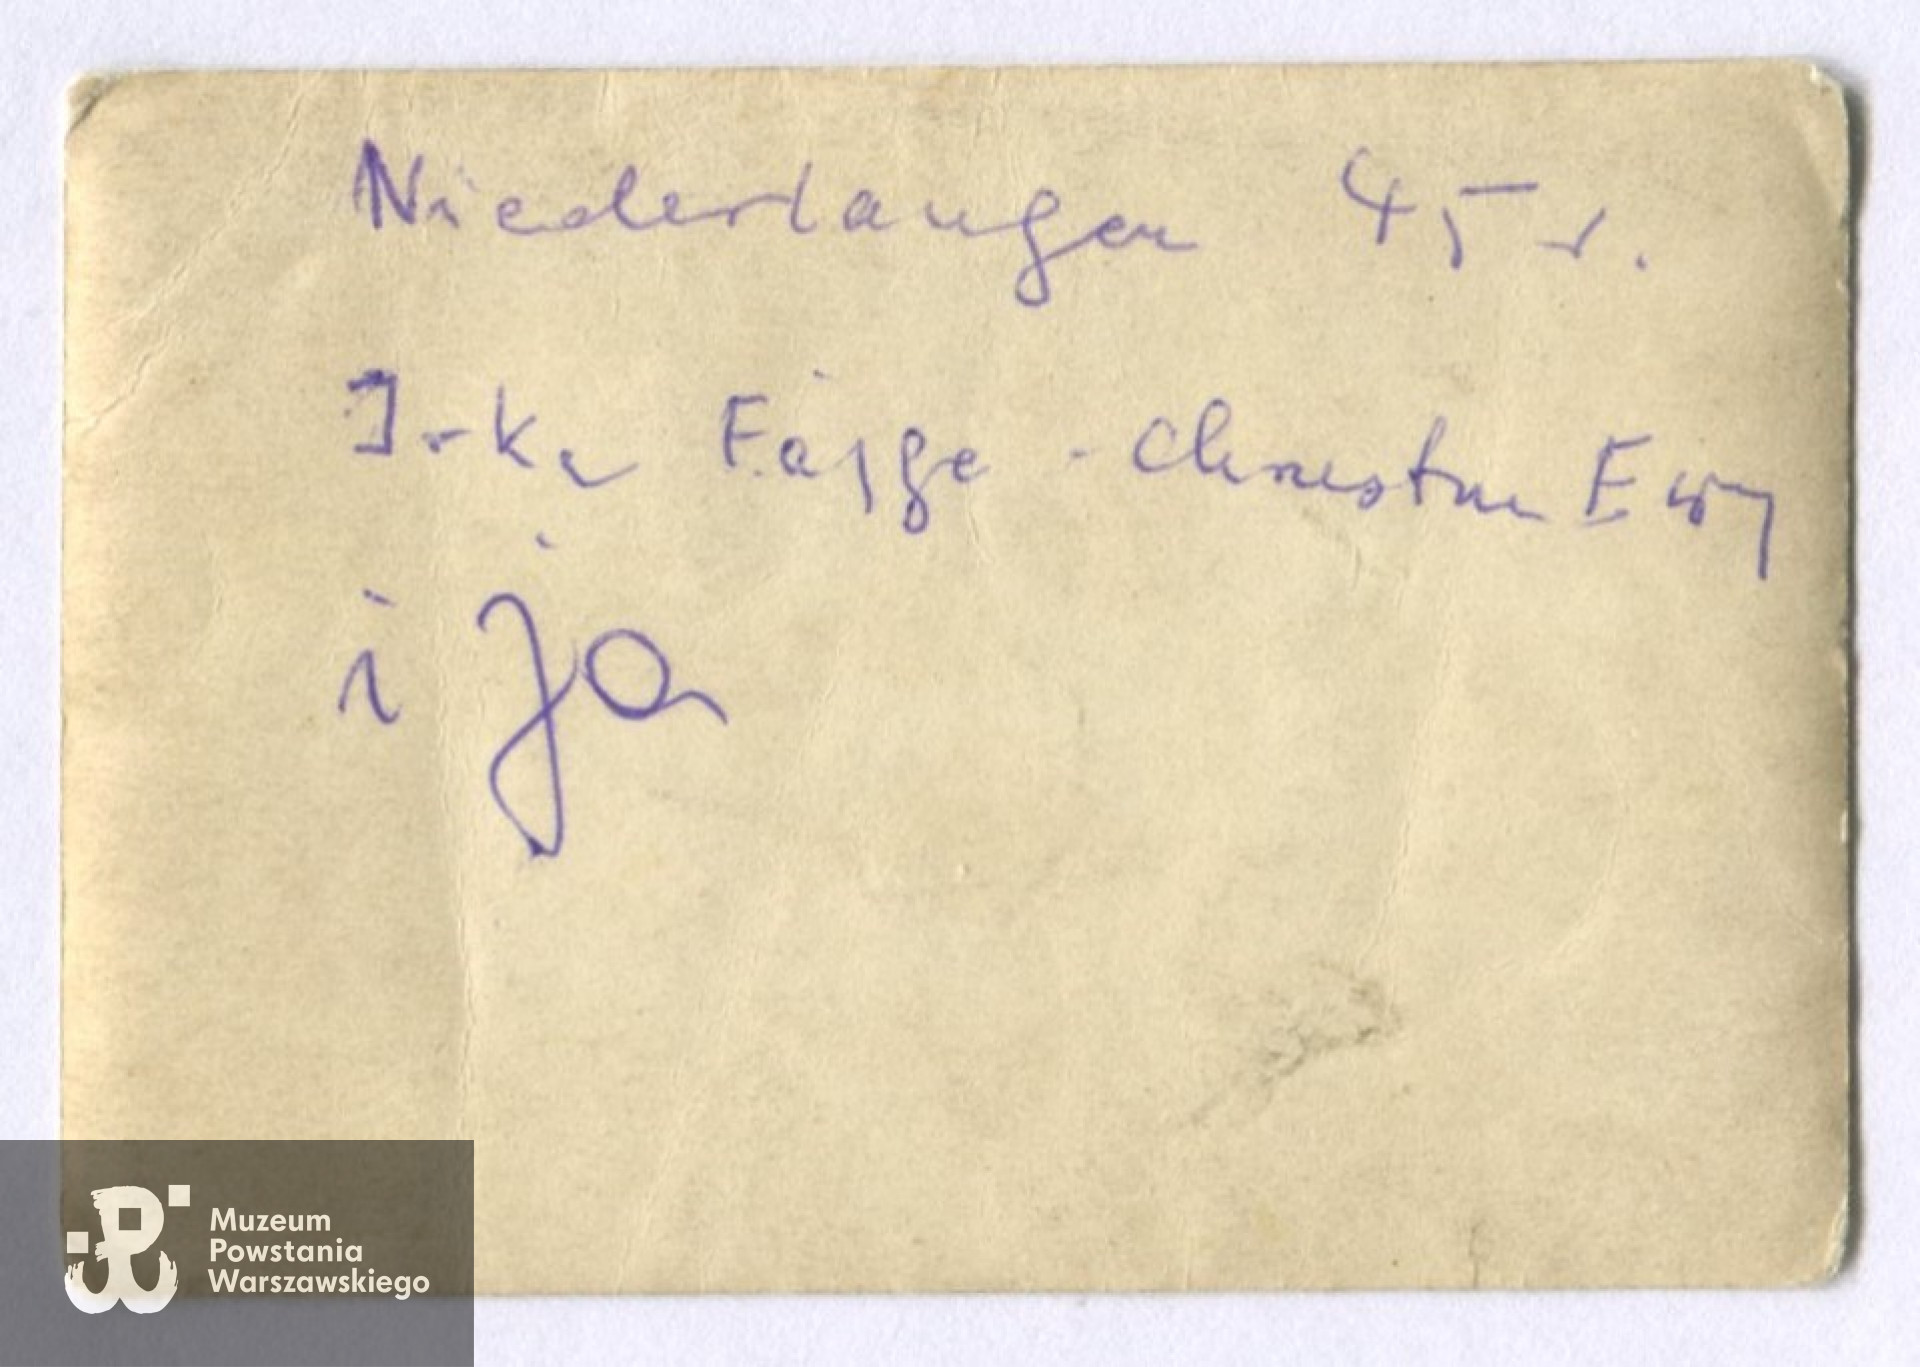 Niederlangen 45 r.
Irka Fajge - Chrzestna Ewy
i ja
Muzeum
Powstania
Warszawskiego